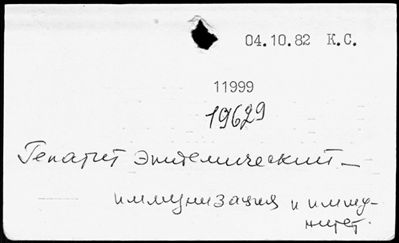 04.10.82 К.С.
11999
19629
Гепатит эпидемический —
иммунизация и имму-
нитет.